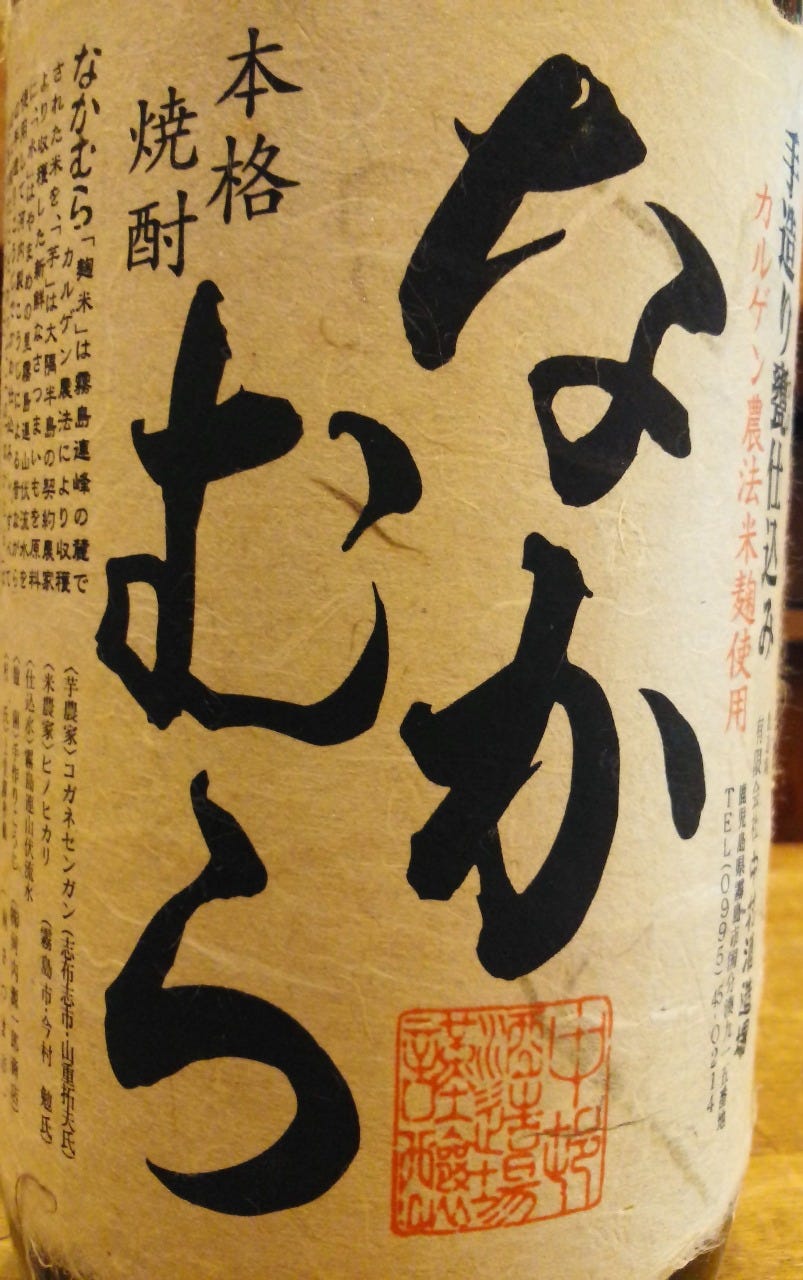 手造り甕仕込み
カルゲン農法米麹使用
なか
むら
本格
焼酎
なかむら
「麹米」は霧島連峰の麓で
カルゲン農法により収穫
された米を、「芋」は大隅半島の契約農家
より収穫した新鮮なさつまいもを原料
に、「水」はやまめの里霧島連山伏流水を
〈芋農家〉コガネセンガン（志布志市・山重拓夫氏）
〈米農家〉ヒノヒカリ（霧島市・今村 勉氏）
〈仕込水〉霧島連山伏流水
有限会社 中村酒造場
鹿児島県霧島市国分湊九一五番地
TEL(0995)45-0214